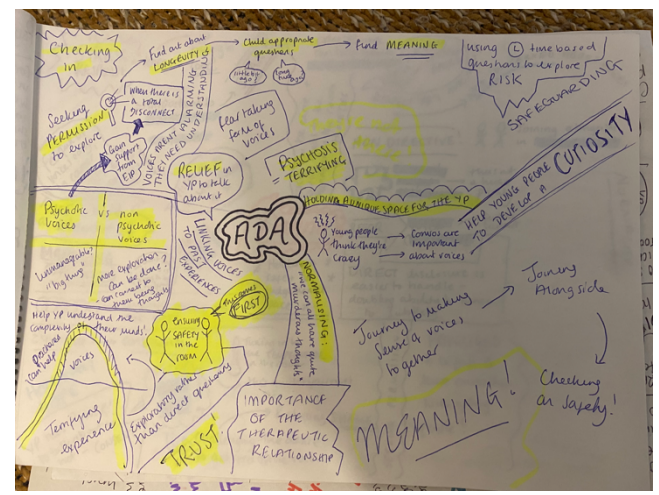 Checking
in
Find out about
LONGEVITY
Child appropriate
questions
little bit
ago?
long
time ago?
Find MEANING
using L time based
questions to explore
RISK
SAFEGUARDING
Seeking
PERMISSION
to explore
When there is
a total
DISCONNECT
Gain
support
from
EIP
VOICES AREN'T ALARMING
THEY NEED UNDERSTANDING
Fear taking
form of
voices
PSYCHOSIS
TERRIFYING
RELIEF in
YP to talk
about it
HOLDING A UNIQUE SPACE FOR THE YP
HELP YOUNG PEOPLE
TO DEVELOP A CURIOSITY
Psychotic
Voices
VS
non
Psychotic
Voices
Unmanageable?
"big thing"
More exploration
can be done.
can connect to
them being
thoughts
LINKING VOICES
TO PAST
EXPERIENCES
ADA
Young people
think they're
crazy
Convos are
important
about voices
NORMALISING:
"we can all have quite
murderous thoughts"
Help YP understand the
complexity of their minds!
voices
Terrifying
experience
ensuring
SAFETY
in the
room
FIRST
Exploratory rather
than direct questioning
TRUST!
IMPORTANCE
OF THE
THERAPEUTIC
RELATIONSHIP
Journey to making
sense of voices
together
Journey
Alongside
Checking
on Safety!
MEANING!